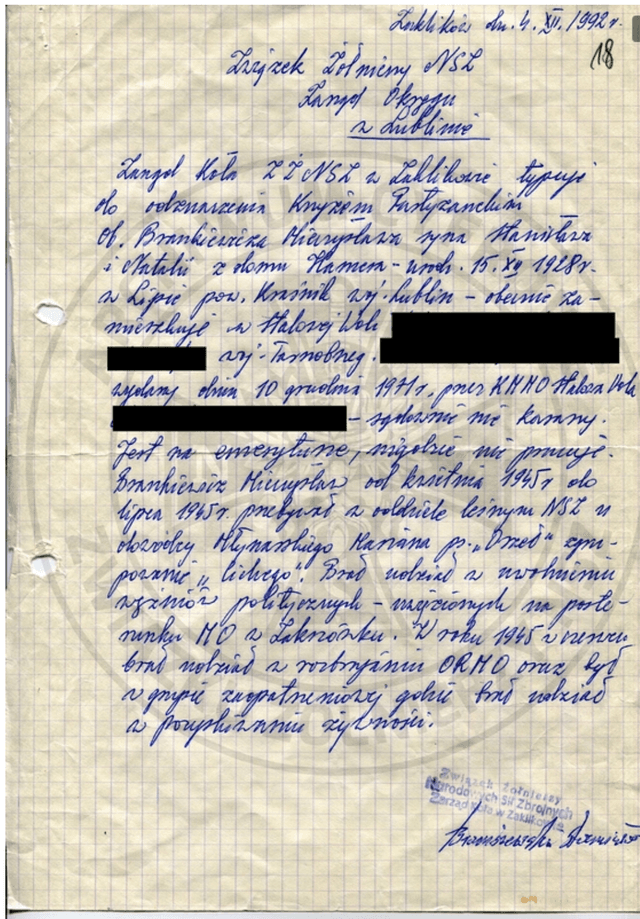 Zaklików dn. 4. XII. 1992 r.
18
Związek Żołnierzy NSZ
Zarząd Okręgu
w Lublinie
Zarząd Koła ZŻNSZ w Zaklikowie typuje
do odznaczenia Krzyżem Partyzanckim
Ob. Brankiewicza Mieczysława syna Stanisława
i Natalii z domu - urodz. 15. XII 1928 r.
w Lipie pow. Kraśnik woj. Lublin - obecnie za-
mieszkuje w Stalowej Woli
woj. Tarnobrzeg.
wydany dnia 10 grudnia 1971 r. przez KMMO Stalowa Wola
- sądownie nie karany.
Jest na emeryturze, nigdzie nie pracuje.
Brankiewicz Mieczysław od kwietnia 1945 r do
lipca 1945 r. przebywał w oddziele leśnym NSZ u
dowódcy Młynarskiego Mariana ps. „Orzeł" zgru-
powanie „Cichego". Brał udział w uwolnieniu
więźniów politycznych - więzionych na poste-
runku MO w Zakrzówku. W roku 1945 w czerwcu
brał udział w rozbrojeniu ORMO oraz był
w grupie zaopatrzeniowej gdzie brał udział
w pozyskiwaniu żywności.
Związek Żołnierzy
Narodowych Sił Zbrojnych
Zarząd Koła w Zaklikowie